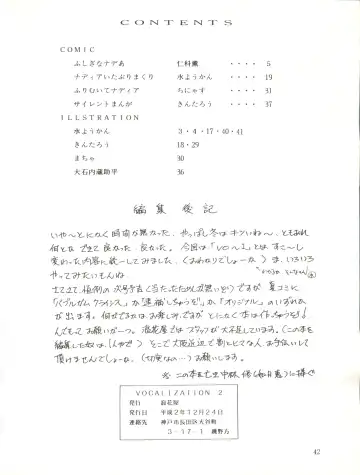 CONTENTS
COMIC
ふしぎなナデあ 仁科薫 ・・・・ 5
ナディアいたぶりまくり 水ようかん ・・・・ 19
ふりむいてナディア ちにゃす ・・・・ 31
サイレントまんが きんたろう ・・・・ 37
ILLSTRATION
水ようかん 3・4・17・40・41
きんたろう 18・29
まちゃ 30
大石内蔵助平 36
編集後記
いや〜とにかく時間が無かった、やっぱし冬はキツいね〜、ともあれ
何とか できて良かった、良かった。今回は「VO〜1」とは すこ〜し
変わった内容に統一してみました、(おわかりでしょーな)は、いろいろ
やってみたいもんね
さてさて、恒例の次号予告(当たったためしは無いけど) 夏コミに
「バブルガムクライシス」か「逮捕しちゃうぞ」か「オリジナル」のいずれか
が出ます。何ができるかはお楽しみですが とにかく本は作っちゃうぞ!
んでもって お願いが一つ。浪花屋ではスタッフが大不足しています。(この本を
編集した奴は1人やぞ) そこで大阪近辺で割とヒマな人、お手伝いして
頂けませんでしょーな、(切実なの…)お願いします。
VOCALIZATION 2
発行 浪花屋
発行日 平成2年12月24日
連絡先 神戸市長田区大谷町
3-17-1 磯野方
42